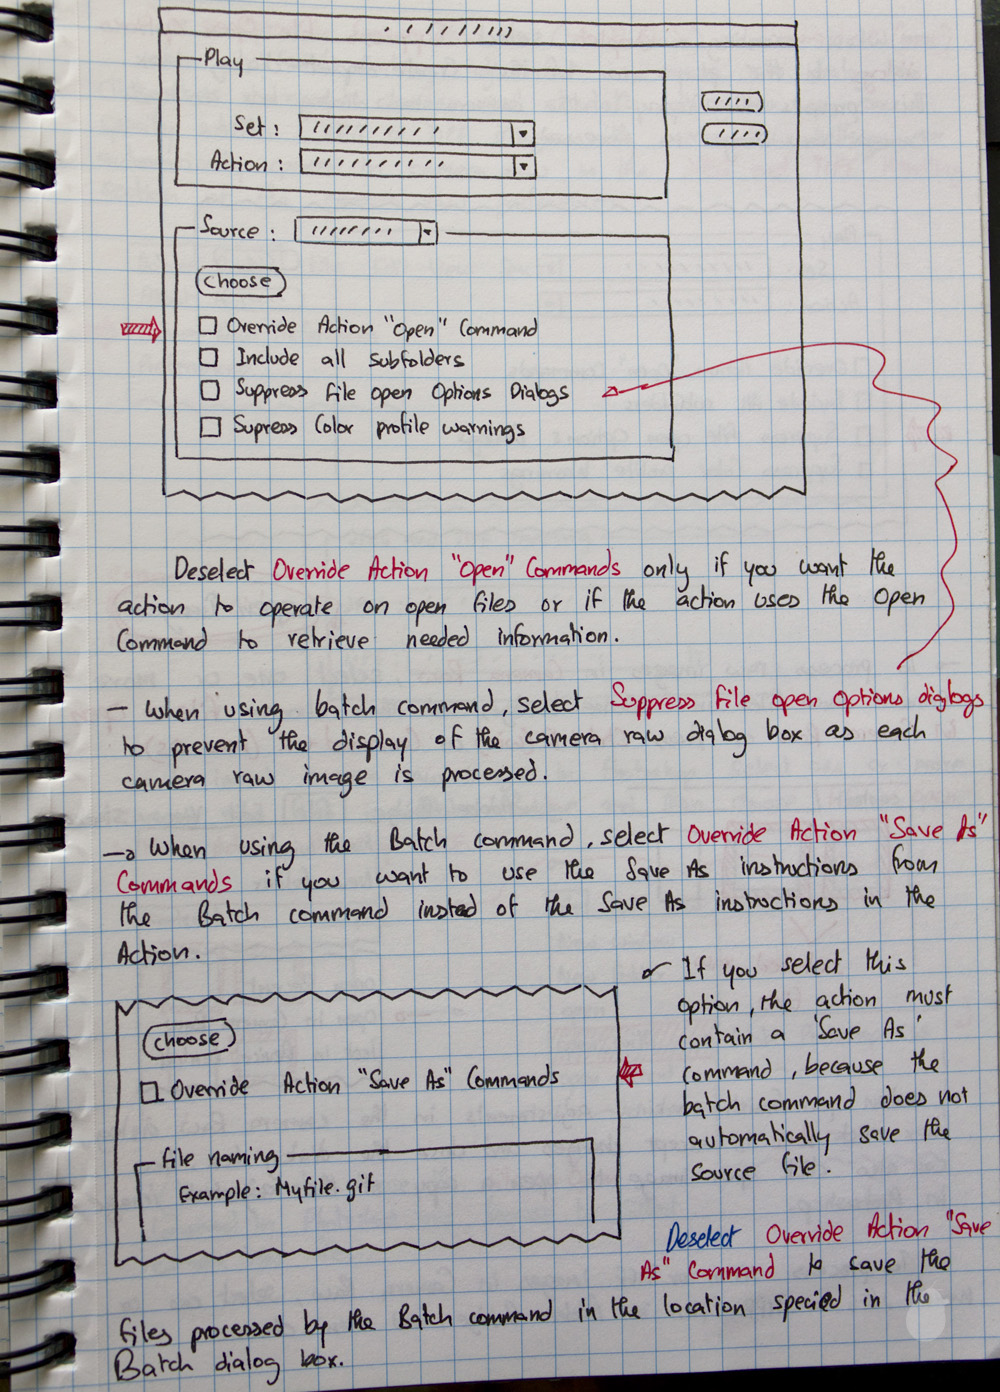 Play
Set :
Action :
Source :
Choose
Override Action "Open" Command
Include all subfolders
Suppress file open Options Dialogs
Supress Color profile warnings
Deselect Override Action "Open" Commands only if you want the
action to operate on open files or if the action uses the Open
Command to retrieve needed information.
- When using batch command, select Suppress file open Options diglogs
to prevent the display of the camera raw dialog box as each
camera raw image is processed.
→ When using the Batch command, select Override Action "Save As"
Commands if you want to use the Save As instructions from
the Batch command insted of the Save As instructions in the
Action.
If you select this
option, the action must
contain a 'Save As'
command, because the
batch command does not
automatically save the
source file.
Choose
Override Action "Save As" Commands
file naming
Example: Myfile.gif
Deselect Override Action "Save
As" Command to save the
files processed by the Batch command in the location specied in the
Batch dialog box.